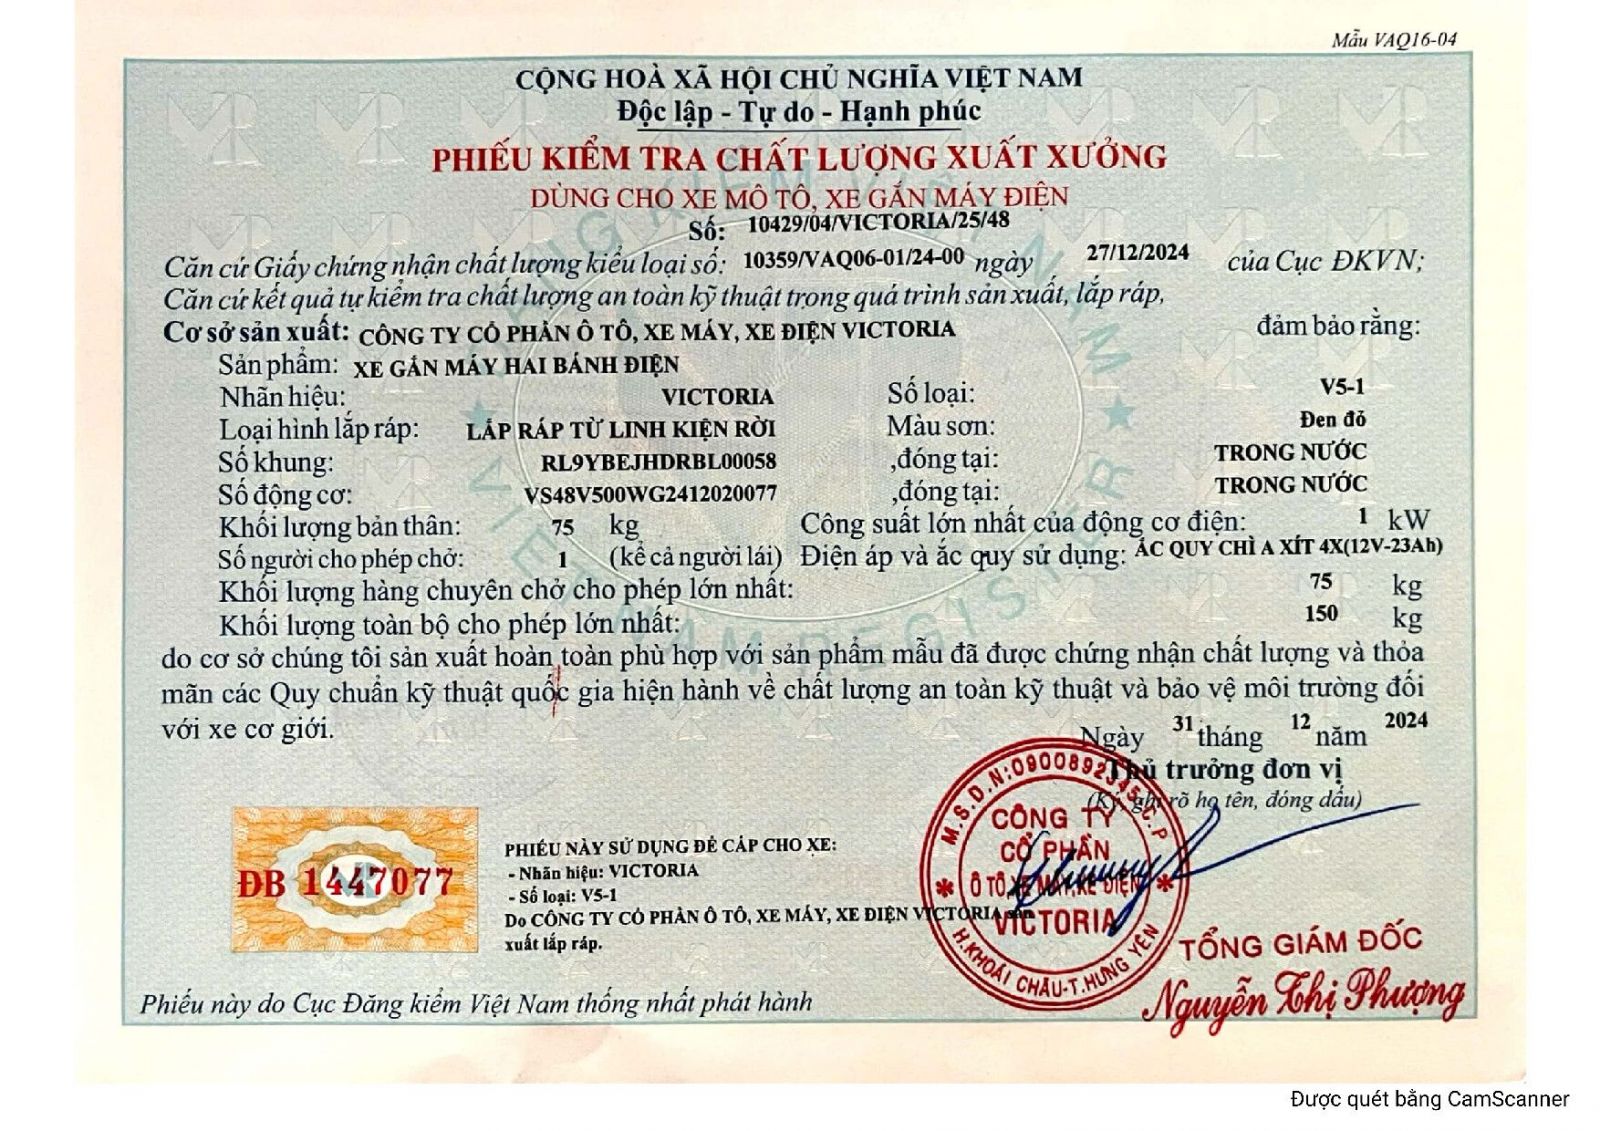 Mẫu VAQ16-04
CỘNG HOÀ XÃ HỘI CHỦ NGHĨA VIỆT NAM
Độc lập - Tự do - Hạnh phúc
PHIẾU KIỂM TRA CHẤT LƯỢNG XUẤT XƯỞNG
DÙNG CHO XE MÔ TÔ, XE GẮN MÁY ĐIỆN
Số: 10429/04/VICTORIA/25/48
Căn cứ Giấy chứng nhận chất lượng kiểu loại số: 10359/VAQ06-01/24-00 ngày 27/12/2024 của Cục ĐKVN;
Căn cứ kết quả tự kiểm tra chất lượng an toàn kỹ thuật trong quá trình sản xuất, lắp ráp,
Cơ sở sản xuất: CÔNG TY CỔ PHẦN Ô TÔ, XE MÁY, XE ĐIỆN VICTORIA đảm bảo rằng:
Sản phẩm: XE GẮN MÁY HAI BÁNH ĐIỆN
Nhãn hiệu: VICTORIA Số loại: V5-1
Loại hình lắp ráp: LẮP RÁP TỪ LINH KIỆN RỜI Màu sơn: Đen đỏ
Số khung: RL9YBEJHDRBL00058 ,đóng tại: TRONG NƯỚC
Số động cơ: VS48V500WG2412020077 ,đóng tại: TRONG NƯỚC
Khối lượng bản thân: 75 kg Công suất lớn nhất của động cơ điện: 1 kW
Số người cho phép chở: 1 (kể cả người lái) Điện áp và ắc quy sử dụng: ẮC QUY CHÌ A XÍT 4X(12V-23Ah)
Khối lượng hàng chuyên chở cho phép lớn nhất: 75 kg
Khối lượng toàn bộ cho phép lớn nhất: 150 kg
do cơ sở chúng tôi sản xuất hoàn toàn phù hợp với sản phẩm mẫu đã được chứng nhận chất lượng và thỏa
mãn các Quy chuẩn kỹ thuật quốc gia hiện hành về chất lượng an toàn kỹ thuật và bảo vệ môi trường đối
với xe cơ giới.
Ngày 31 tháng 12 năm 2024
Thủ trưởng đơn vị
(Ký, ghi rõ họ tên, đóng dấu)
M.S.D.N:0900892345-C.P
CÔNG TY
CỔ PHẦN
Ô TÔ, XE MÁY, XE ĐIỆN
VICTORIA
H.KHOÁI CHÂU-T.HƯNG YÊN
ĐB 1447077
PHIẾU NÀY SỬ DỤNG ĐỂ CẤP CHO XE:
- Nhãn hiệu: VICTORIA
- Số loại: V5-1
Do CÔNG TY CỔ PHẦN Ô TÔ, XE MÁY, XE ĐIỆN VICTORIA sản
xuất lắp ráp.
TỔNG GIÁM ĐỐC
Nguyễn Thị Phượng
Phiếu này do Cục Đăng kiểm Việt Nam thống nhất phát hành
ĐĂNG KIỂM VIỆT NAM
VIET NAM REGISTER
VR
Được quét bằng CamScanner